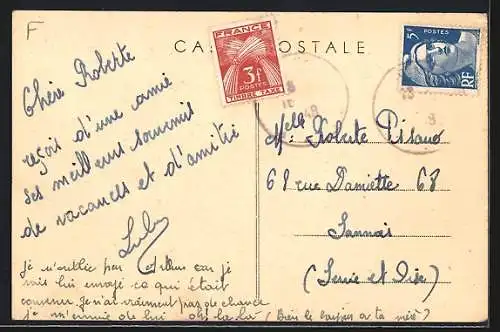 F
CARTE POSTALE
FRANCE
3F
POSTES
TIMBRE TAXE
POSTES
RF
Chère Roberte
reçoit d'une amie
ses meilleurs souvenirs
de vacances et d'amitié
Melle Roberte Pissano
68 rue Damiette 68
Sannois
(Seine et Oise)
je n'oublie pas car je
lui envoyé ce qui était
convenu. Je n'ai vraiment pas de chance
je m'ennuie de lui oh la la (Bien le bonjour à ta mère)